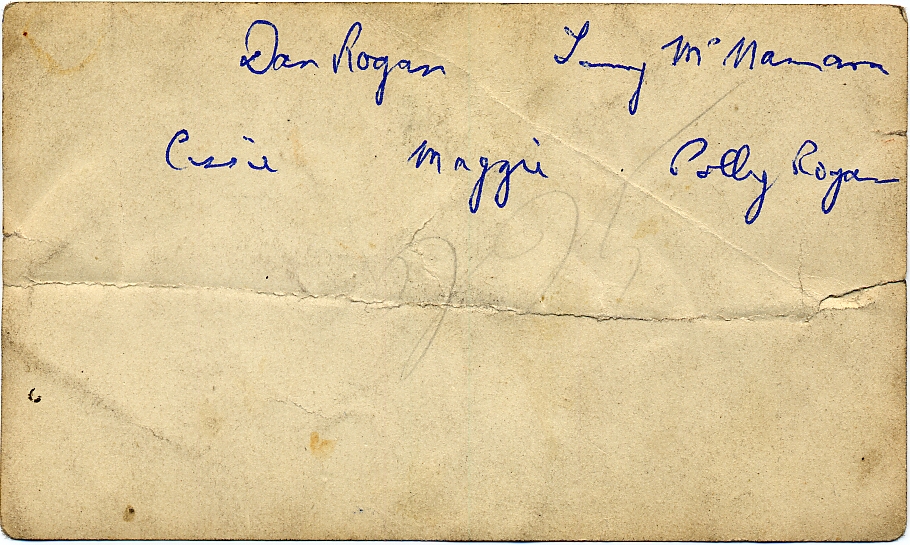 Dan Rogan Tommy McNamara
Cissie Maggie Polly Rogan